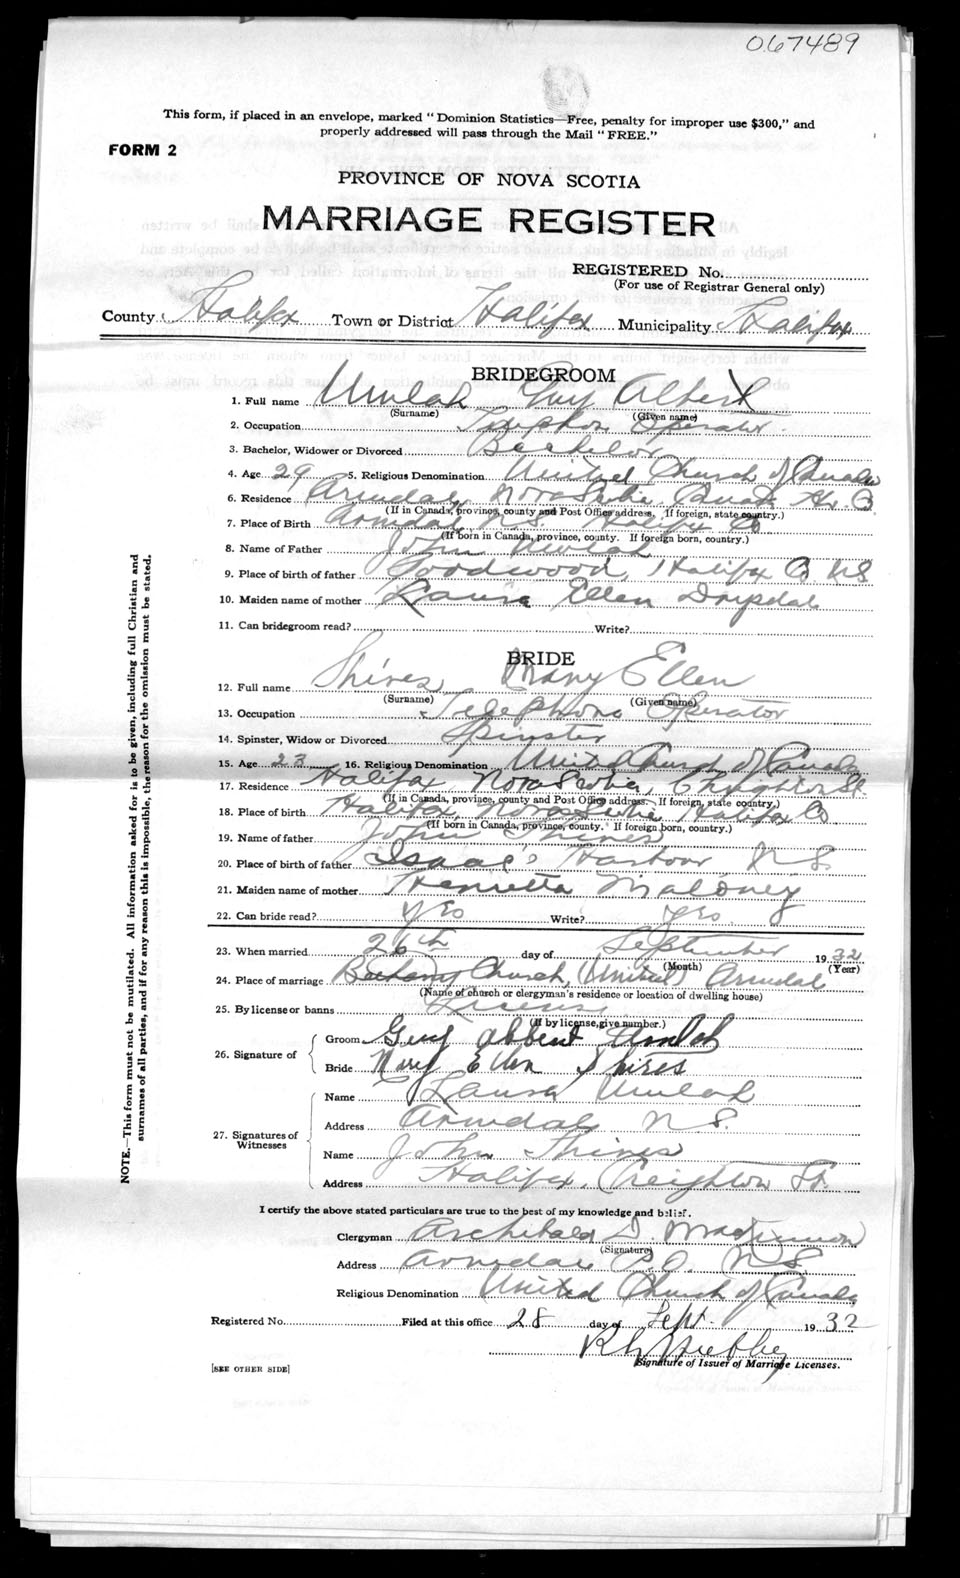 067489
This form, if placed in an envelope, marked "Dominion Statistics—Free, penalty for improper use $300," and
properly addressed will pass through the Mail "FREE."
FORM 2
PROVINCE OF NOVA SCOTIA
MARRIAGE REGISTER
REGISTERED No.
(For use of Registrar General only)
County Halifax Town or District Halifax Municipality Halifax
BRIDEGROOM
1. Full name Umlah Guy Albert
(Surname) (Given name)
2. Occupation Telephone Operator
3. Bachelor, Widower or Divorced Bachelor
4. Age 29 5. Religious Denomination United Church of Canada
6. Residence Armdale Nova Scotia Hx. Co
(If in Canada, province, county and Post Office address. If foreign, state country.)
7. Place of Birth Armdale N.S. Halifax Co
(If born in Canada, province, county. If foreign born, country.)
8. Name of Father John Umlah
9. Place of birth of father Goodwood, Halifax Co NS
10. Maiden name of mother Laura Ellen Drysdale
11. Can bridegroom read? Write?
BRIDE
12. Full name Shires Mary Ellen
(Surname) (Given name)
13. Occupation Telephone Operator
14. Spinster, Widow or Divorced Spinster
15. Age 23 16. Religious Denomination United Church of Canada
17. Residence Halifax, Nova Scotia, Creighton St.
(If in Canada, province, county and Post Office address. If foreign, state country.)
18. Place of birth Halifax, Nova Scotia, Halifax Co
(If born in Canada, province, county. If foreign born, country.)
19. Name of father John Shires
20. Place of birth of father Isaac's Harbour N.S.
21. Maiden name of mother Henrietta Maloney
22. Can bride read? Yes Write? Yes
23. When married 26th day of September 1932
(Month) (Year)
24. Place of marriage Bethany Church, (United) Armdale
(Name of church or clergyman's residence or location of dwelling house)
25. By license or banns License
(If by license, give number.)
26. Signature of
Groom Guy Albert Umlah
Bride Mary Ellen Shires
27. Signatures of Witnesses
Name Laura Umlah
Address Armdale N.S.
Name John Shires
Address Halifax, Creighton St.
I certify the above stated particulars are true to the best of my knowledge and belief.
Clergyman Archibald D. MacKinnon
(Signature)
Address Armdale P.O. N.S.
Religious Denomination United Church of Canada
Registered No. Filed at this office 28 day of Sept. 1932
Signature of Issuer of Marriage Licenses.
[SEE OTHER SIDE]
NOTE.—This form must not be mutilated. All information asked for is to be given, including full Christian and
surnames of all parties, and if for any reason this is impossible, the reason for the omission must be stated.